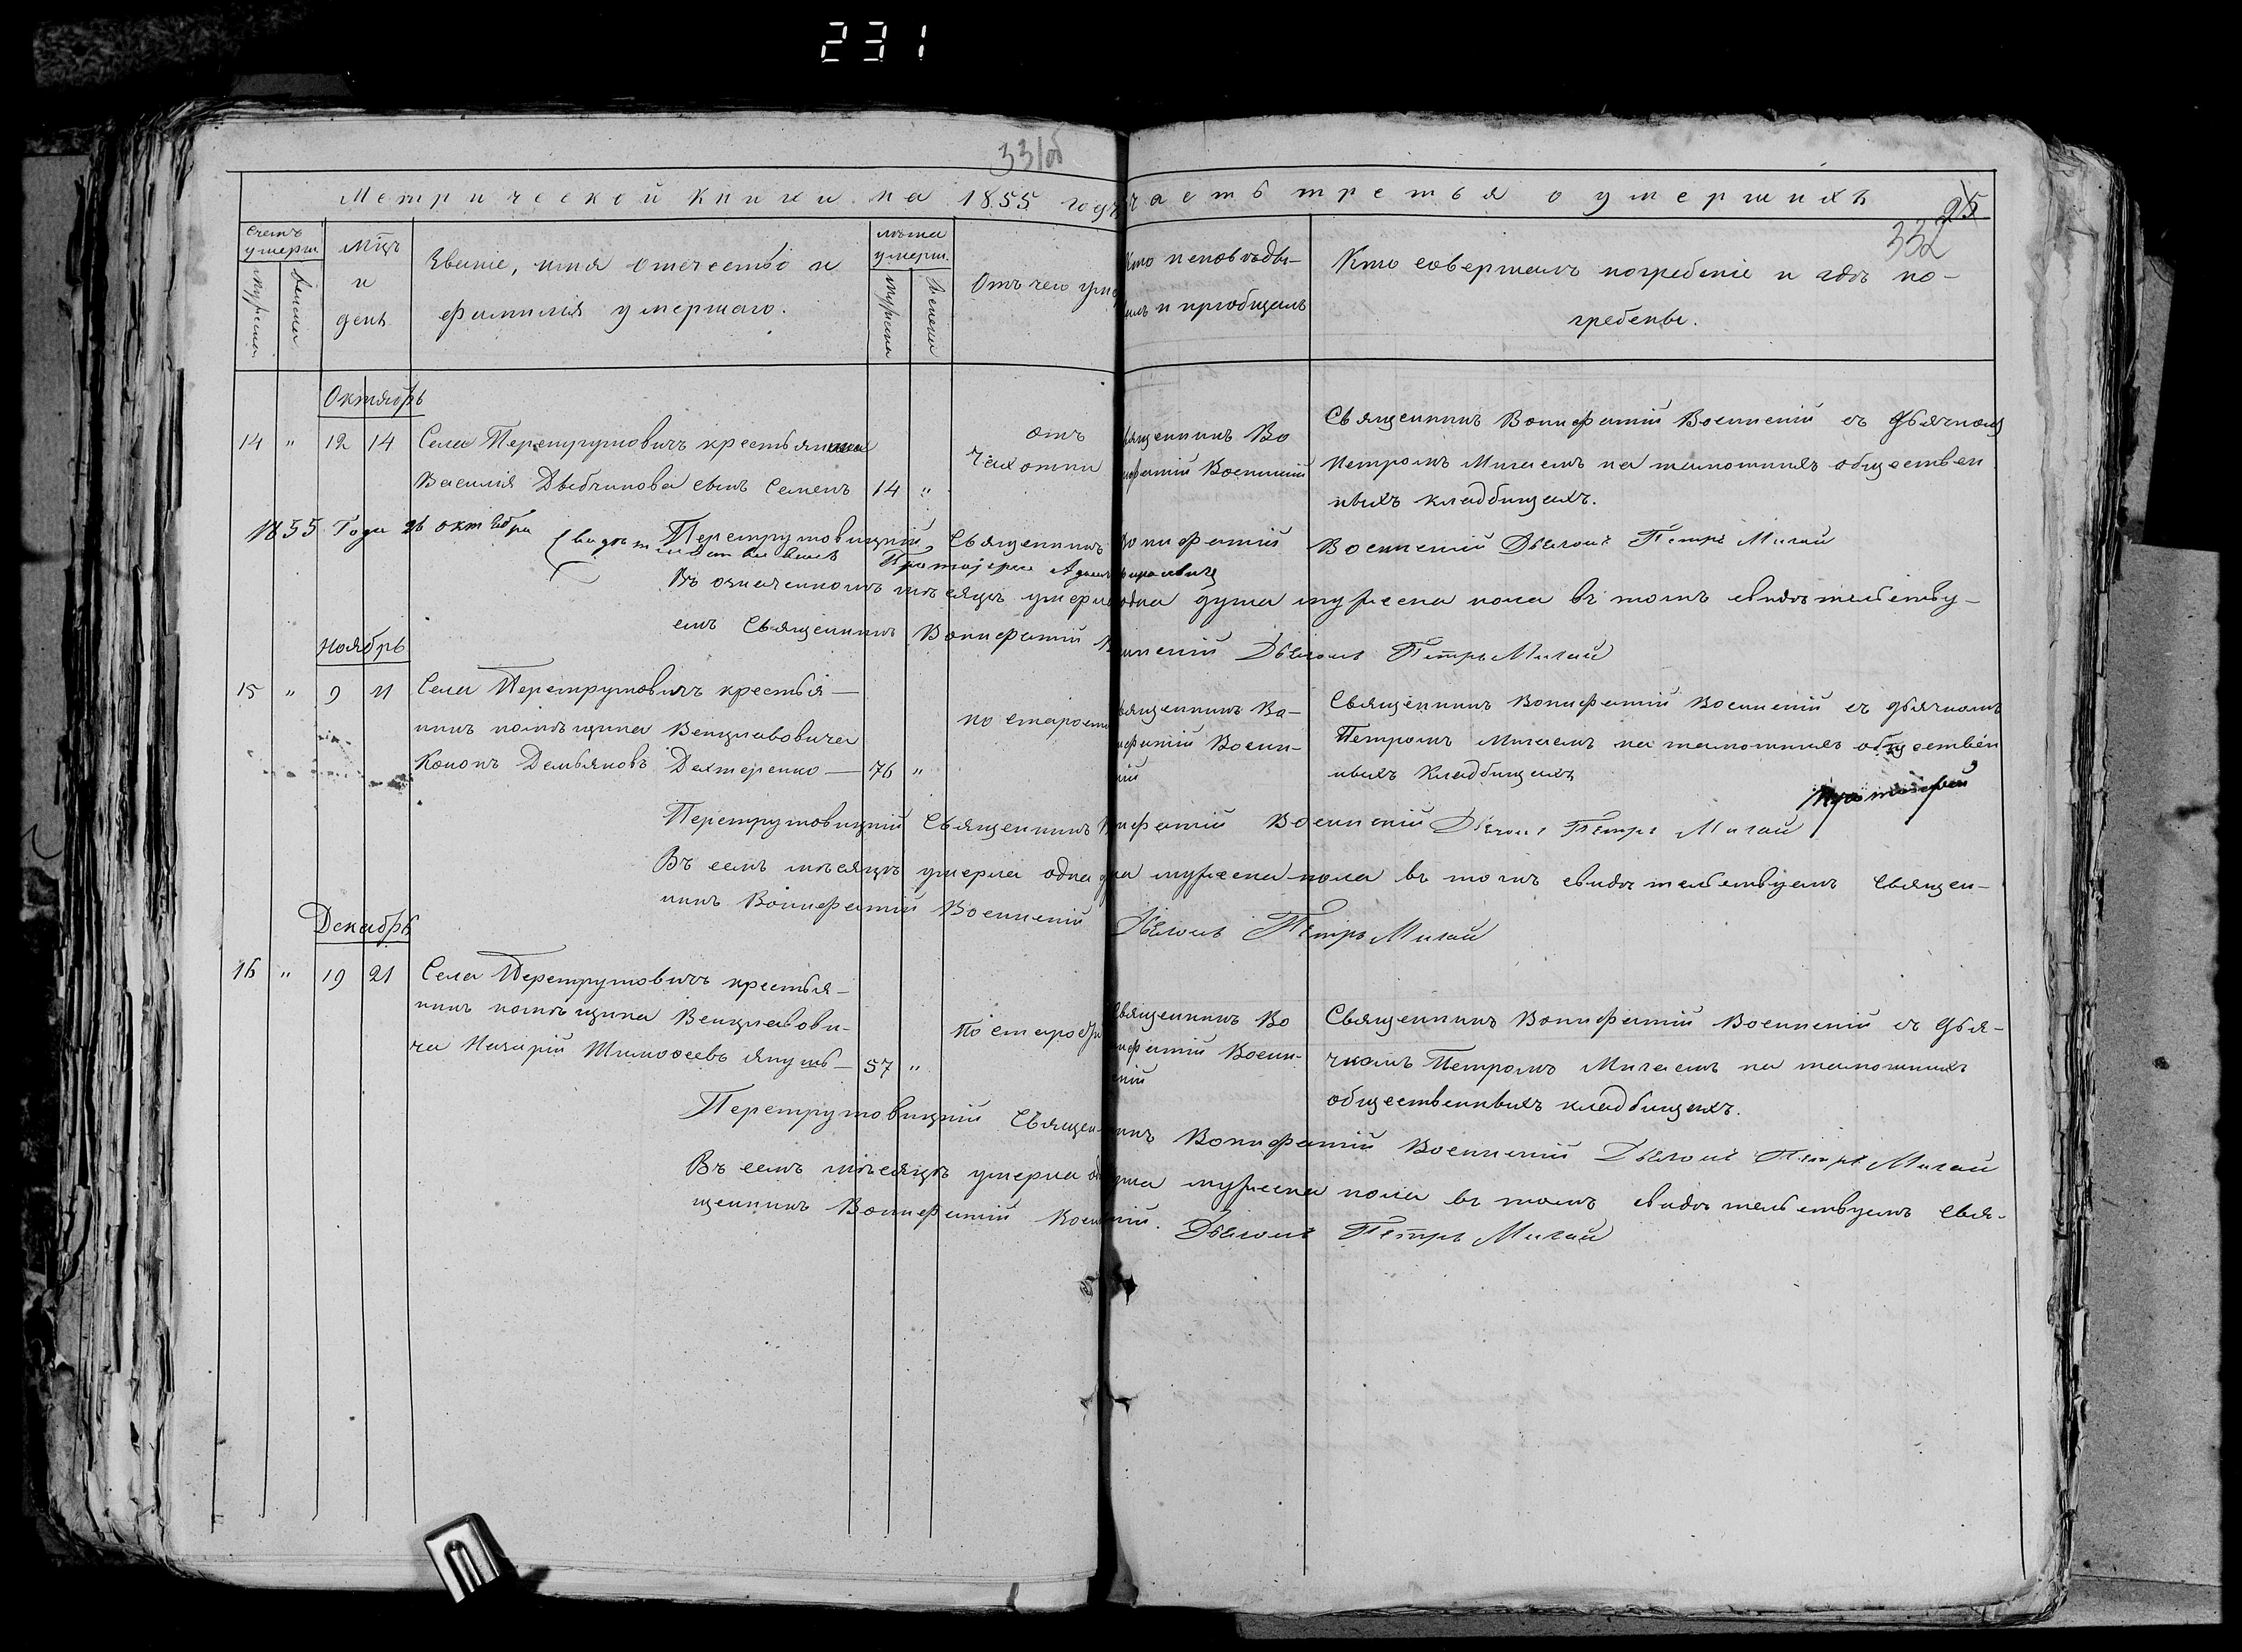 231
331об
Метрической книги на 1855 годъ часть третья о умершихъ
25
332
Счетъ умерш.
мужеска
женска
Мѣцъ и день
Званіе, имя отечество и фамилія умершаго.
лѣта умерш.
мужеска
женска
Отъ чего умеръ
Кто исповѣды-
валъ и пріобщалъ
Кто совершалъ погребеніе и гдѣ по-
гребены.
Октябрь
14 " 12 14 Села Перетрутовичъ крестьянина
Василія сынъ Семенъ 14 "
отъ
чахотки
Священникъ Во
нифатій Военскій
Священникъ Вонифатій Военскій съ дьячкомъ
Петромъ Мигаемъ на тамошнихъ обществен
ныхъ кладбищахъ.
1855 Года 26 октября
Перетрутовицкій Священникъ Вонифатій Военскій Дьячокъ Петръ Мигай
Протоіерей
Въ означенномъ мѣсяцѣ умерла одна душа мужеска пола въ томъ свидѣтельству-
емъ Священникъ Вонифатій Военскій Дьячокъ Петръ Мигай
Ноябрь
15 " 9 11 Села Перетрутовичъ крестья-
нинъ помѣщика Венцлавовича
Кононъ Демьяновъ Дехтеренко - 76 "
по старости
Священникъ Во-
нифатій Воен-
скій
Священникъ Вонифатій Военскій съ дьячкомъ
Петромъ Мигаемъ на тамошнихъ обществен
ныхъ кладбищахъ
Протоіерей
Перетрутовицкій Священникъ Вонифатій Военскій Дьячокъ Петръ Мигай
Въ семъ мѣсяцѣ умерла одна душа мужеска пола въ томъ свидѣтельствуемъ Священ-
никъ Вонифатій Военскій Дьячокъ Петръ Мигай
Декабрь
16 " 19 21 Села Перетрутовичъ крестья-
нинъ помѣщика Венцлавови-
ча Назарій Тимофеевъ Якуть - 57 "
По старости
Священникъ Во
нифатій Воен-
скій
Священникъ Вонифатій Военскій съ дья-
чкомъ Петромъ Мигаемъ на тамошнихъ
общественныхъ кладбищахъ.
Перетрутовицкій Священникъ Вонифатій Военскій Дьячокъ Петръ Мигай
Въ семъ мѣсяцѣ умерла одна душа мужеска пола въ томъ свидѣтельствуемъ Свя-
щенникъ Вонифатій Военскій. Дьячокъ Петръ Мигай